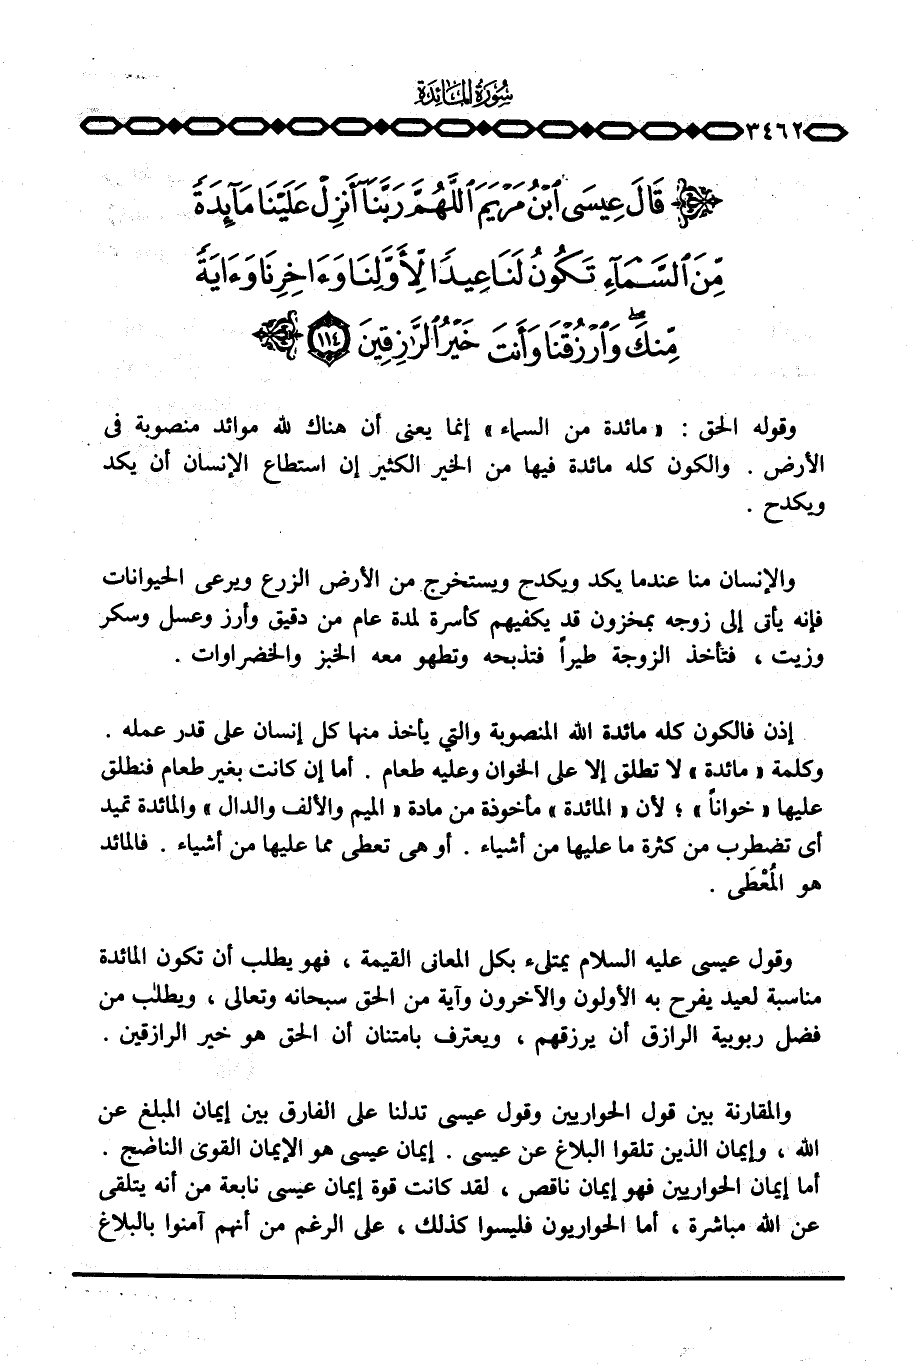 سُورَةُ المَائِدَة
٣٤٦٢
قَالَ عِيسَى ٱبْنُ مَرْيَمَ ٱللَّهُمَّ رَبَّنَآ أَنزِلْ عَلَيْنَا مَآئِدَةً
مِّنَ ٱلسَّمَآءِ تَكُونُ لَنَا عِيدًا لِّأَوَّلِنَا وَءَاخِرِنَا وَءَايَةً
مِّنكَ ۖ وَٱرْزُقْنَا وَأَنتَ خَيْرُ ٱلرَّٰزِقِينَ ١١٤
وقوله الحق : « مائدة من السماء » إنما يعنى أن هناك لله موائد منصوبة فى
الأرض . والكون كله مائدة فيها من الخير الكثير إن استطاع الإنسان أن يكد
ويكدح .
والإنسان منا عندما يكد ويكدح ويستخرج من الأرض الزرع ويرعى الحيوانات
فإنه يأتى إلى زوجه بمخزون قد يكفيهم كأسرة لمدة عام من دقيق وأرز وعسل وسكر
وزيت ، فتأخذ الزوجة طيراً فتذبحه وتطهو معه الخبز والخضراوات .
إذن فالكون كله مائدة الله المنصوبة والتي يأخذ منها كل إنسان على قدر عمله .
وكلمة « مائدة » لا تطلق إلا على الخوان وعليه طعام . أما إن كانت بغير طعام فنطلق
عليها « خواناً » ؛ لأن « المائدة » مأخوذة من مادة « الميم والألف والدال » والمائدة تميد
أى تضطرب من كثرة ما عليها من أشياء . أو هى تعطى مما عليها من أشياء . فالمائد
هو المُعْطَى .
وقول عيسى عليه السلام يمتلىء بكل المعانى القيمة ، فهو يطلب أن تكون المائدة
مناسبة لعيد يفرح به الأولون والآخرون وآية من الحق سبحانه وتعالى ، ويطلب من
فضل ربوبية الرازق أن يرزقهم ، ويعترف بامتنان أن الحق هو خير الرازقين .
والمقارنة بين قول الحواريين وقول عيسى تدلنا على الفارق بين إيمان المبلغ عن
الله ، وإيمان الذين تلقوا البلاغ عن عيسى . إيمان عيسى هو الإيمان القوى الناضج .
أما إيمان الحواريين فهو إيمان ناقص ، لقد كانت قوة إيمان عيسى نابعة من أنه يتلقى
عن الله مباشرة ، أما الحواريون فليسوا كذلك ، على الرغم من أنهم آمنوا بالبلاغ